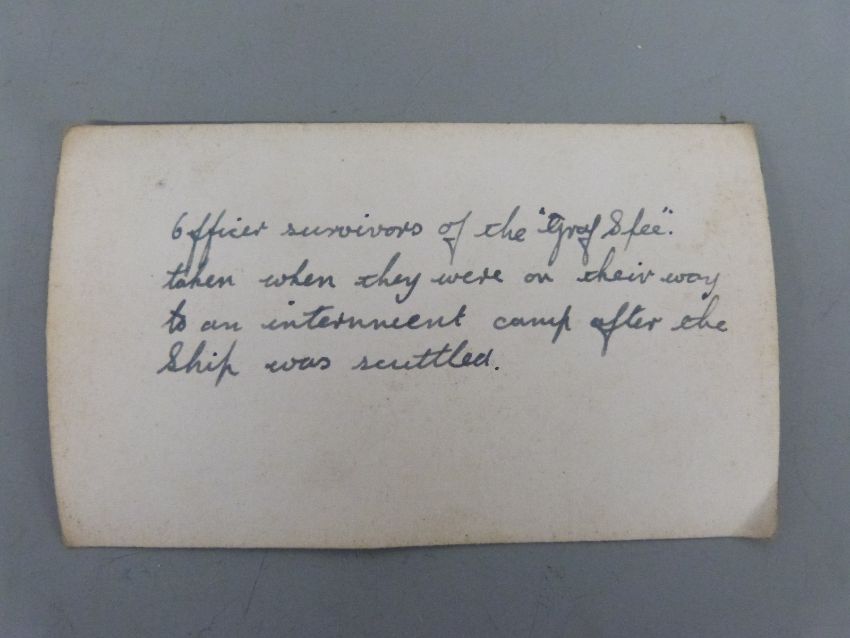 Officer survivors of the "Graf Spee".
taken when they were on their way
to an internment camp after the
Ship was scuttled.